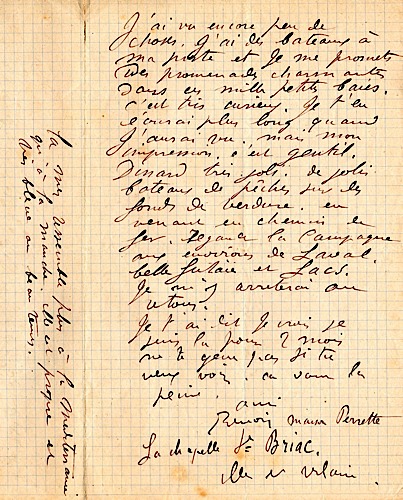 J'ai vu encore peu de
choses. J'ai des bateaux à
ma porte et je me promets
des promenades charmantes
dans ces mille petites baies.
c'est très curieux. Je t'en
écrirai plus long quand
j'aurai vu. mais mon
impression, c'est gentil.
Dinard très joli. de jolis
bateaux de pêches sur des
fonds de verdure. en
venant en chemin de
fer. Regarde la Campagne
aux environs de Laval.
belle futaie et Lacs.
Je m'y arreterai au
retour.
Je t'ai dit je crois je
suis là pour 2 mois
ne te gene pas si tu
veux voir. ca vaut la
peine.
ami
Renoir maison Perrette
La chapelle St Briac.
Ille et vilaine.
la mer ressemble plus à la mediterranée
qu'à la manche. Elle est propre et
très bleue au beau temps.